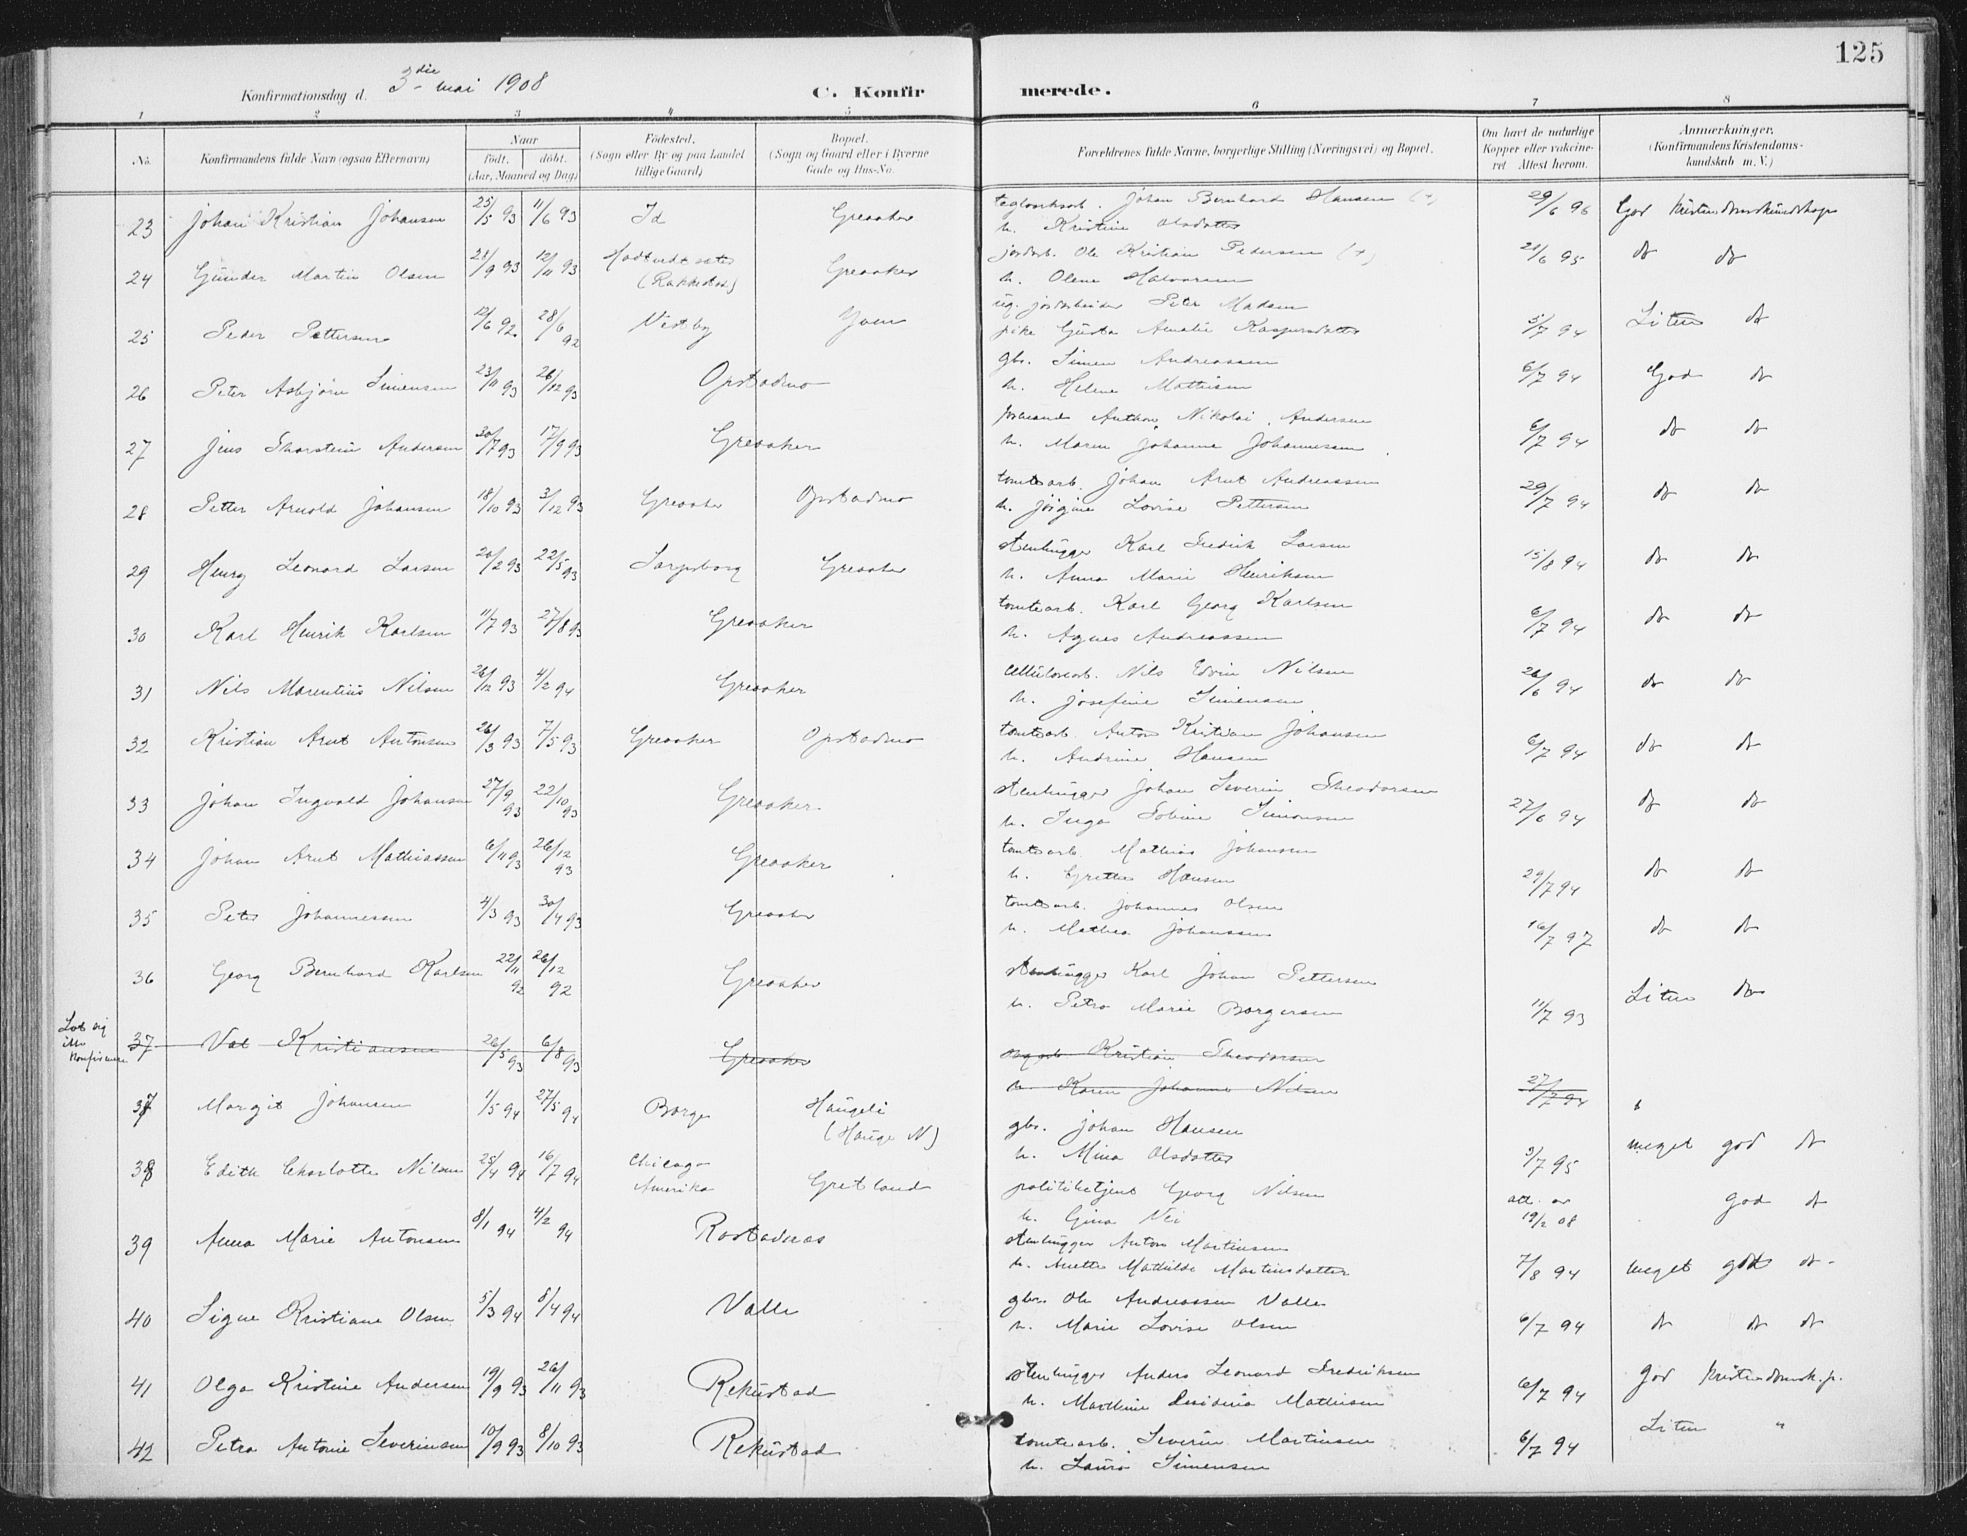 125
Konfirmationsdag d. 3die mai 1908 C. Konfirmerede.
1 2 3 4 5 6 7 8
No. Konfirmandens fulde Navn (ogsaa Efternavn) Naar født, døbt. (Aar, Maaned og Dag) Fødested. (Sogn eller By og paa Landet tillige Gaard) Bopæl. (Sogn og Gaard eller i Byerne Gade og Hus-No. Forældrenes fulde Navne, borgerlige Stilling (Næringsvei) og Bopæl. Om havt de naturlige Kopper eller vakcineret. Attest herom. Anmærkninger. (Konfirmandens Kristendomskundskab m. V.)
23 Johan Kristian Johansen 25/5 93 11/6 93 Id Greaaker Johan Bernhard Hansen (+) 29/6 96 God kristendomskundskap
h. Kristine Olsdatter
24 Gunder Martin Olsen 21/9 93 12/11 93 (Rakkestad) Greaaker jordarb. Ole Kristian Pedersen (+) 21/6 95 do do
h. Olene Halvorsen
25 Peder Pettersen 12/6 92 28/6 92 Vestby Yven ug. jordarbeider Peter Madsen 5/7 94 Liten do
pike Gusta Amalie Kaspersdatter
26 Peter Asbjørn Simensen 23/11 93 26/12 93 Opstadmo gbr. Simen Andreassen 6/7 94 God do
h. Helene Mathisen
27 Jens Thorstein Andersen 30/7 93 17/9 93 Greaaker formand Anthon Nikolai Andersen 6/7 94 do do
h. Maren Johanne Johannessen
28 Petter Arnold Johansen 18/10 93 3/12 93 Greaaker Opstadmo tomtearb. Johan Arnt Andreassen 29/7 94 do do
h. Jørgine Lovise Pettersen
29 Henry Leonard Larsen 20/2 93 22/5 93 Sarpsborg Greaaker stenhugger Karl Fredrik Larsen 15/8 94 do do
h. Anna Marie Henriksen
30 Karl Henrik Karlsen 11/7 93 27/8 93 Greaaker tomtearb. Karl Georg Karlsen 6/7 94 do do
h. Agnes Andreassen
31 Nils Marentius Nilsen 26/12 93 4/2 94 Greaaker cellulosearb. Nils Edvin Nilsen 26/6 94 do do
h. Josefine Simensen
32 Kristian Arnt Antonsen 26/3 93 7/5 93 Greaaker Opstadmo tomtearb. Anton Kristian Johansen 6/7 94 do do
h. Andrine Hansen
33 Johan Ingvald Johansen 27/9 93 22/10 93 Greaaker stenhugger Johan Severin Theodorsen 27/6 94 do do
h. Inga Tobine Simonsen
34 Johan Arnt Mathiassen 6/11 93 26/12 93 Greaaker tomtearb. Mathias Johansen 29/7 94 do do
h. Grethe Hansen
35 Peter Johannessen 4/3 93 30/4 93 Greaaker tomtearb. Johannes Olsen 16/7 97 do do
h. Mathea Johanssen
36 Georg Bernhard Karlsen 22/11 92 26/12 92 Greaaker stenhugger Karl Johan Pettersen 11/7 93 Liten do
h. Petra Marie Borgersen
Lot sig ikke konfirmere 37 Kristiansen 26/5 93 6/8 93 Greaaker Kristian Theodorsen 27/7 94
h. Karen Johanne Nilsen
37 Margit Johansen 1/5 94 27/5 94 Borge Haugeli (Hauge N) gbr. Johan Hansen 3/7 95 meget god do
h. Mina Olsdatter
38 Edith Charlotte Nilsen 25/4 94 16/7 94 Chicago Amerika Gretland politibetjent Georg Nilsen att. av 19/2 08 god do
h. Gina Nei
39 Anna Marie Antonsen 8/1 94 4/2 94 Rostadnes stenhugger Anton Martinsen 7/8 94 meget god do
h. Anette Mathilde Martinsdatter
40 Signe Kristiane Olsen 5/3 94 8/4 94 Valle gbr. Ole Andreassen Valle 6/7 94 do do do
h. Marie Lovise Olsen
41 Olga Kristine Andersen 19/9 93 26/11 93 Rekustad stenhugger Anders Leonard Fredriksen 6/7 94 god kristendomsk.p.
h. Mathine Mathisen
42 Petra Antonie Severinsen 10/9 93 8/10 93 Rekustad tomtearb. Severin Martinsen 6/7 94 Liten "
h. Laura Simensen